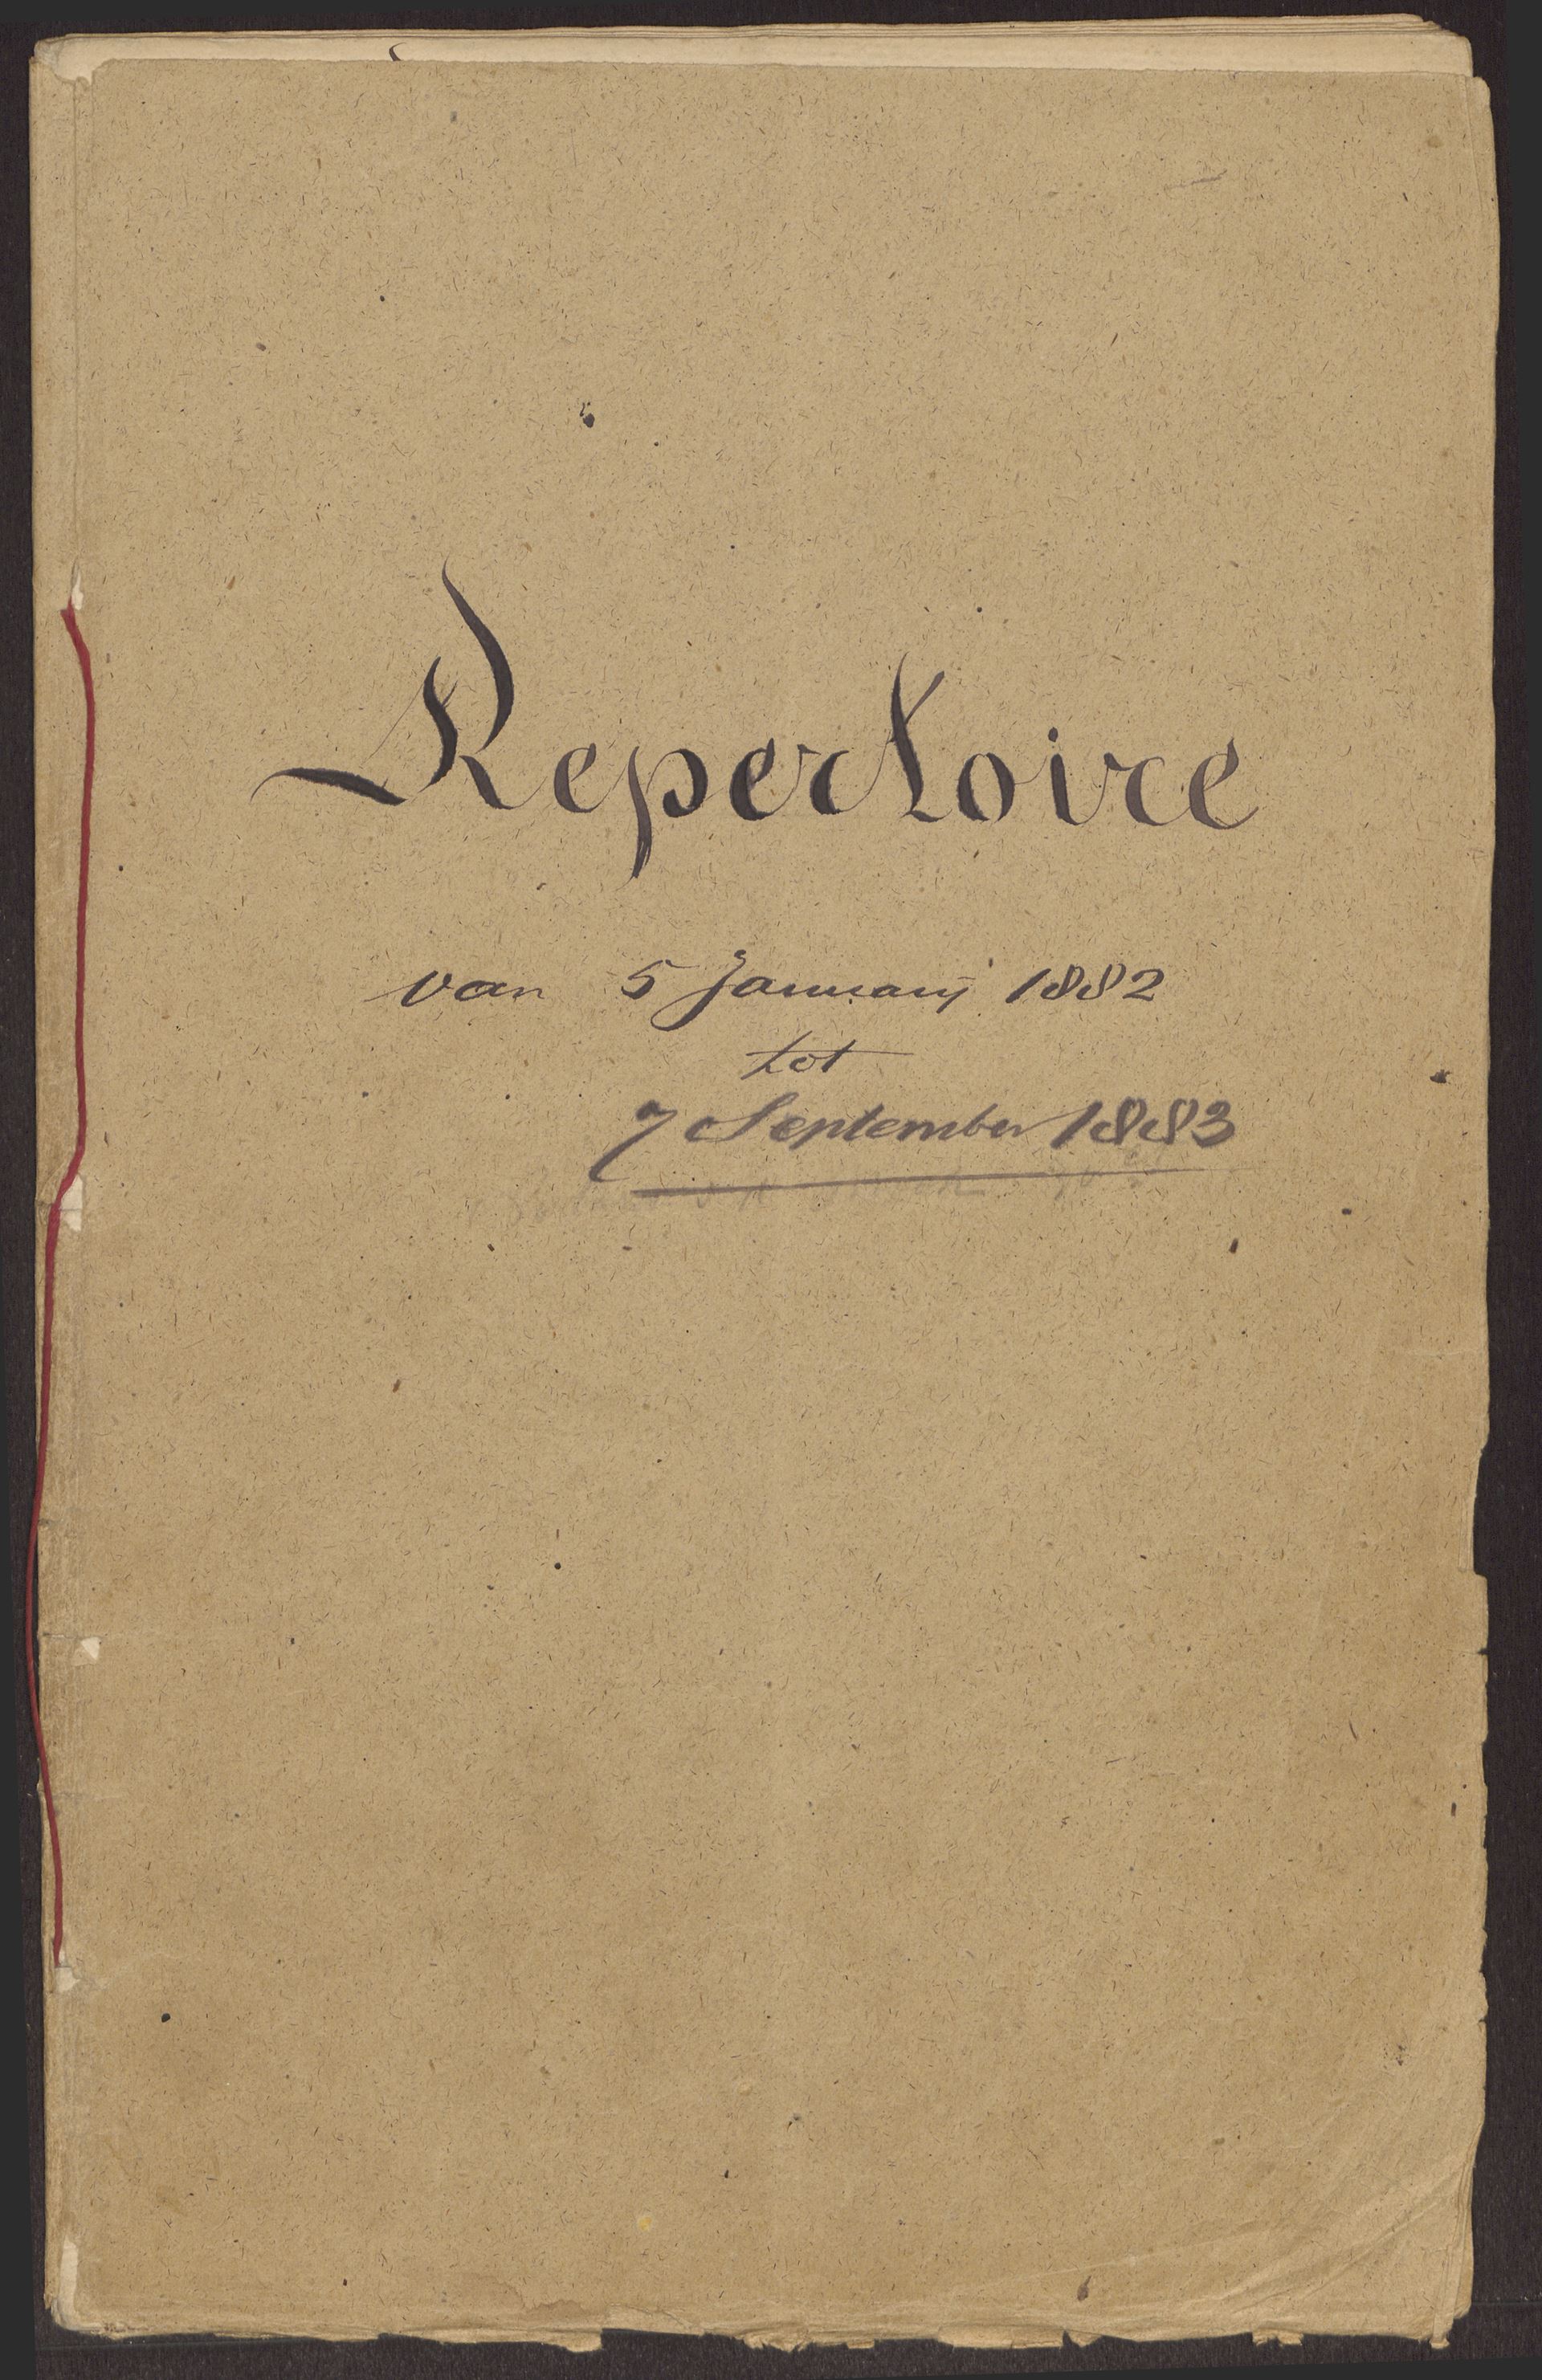 Repertoire
van 5 Januarij 1882
tot
7 September 1883